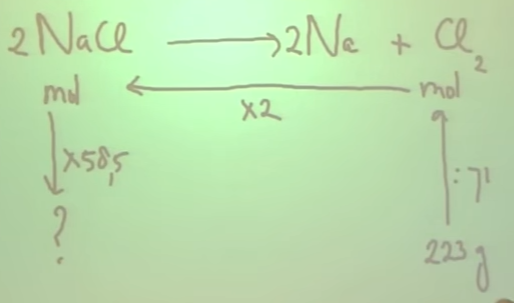 2NaCl → 2Na + Cl₂
mol ← mol
x2
x58,5
:71
?
223 g